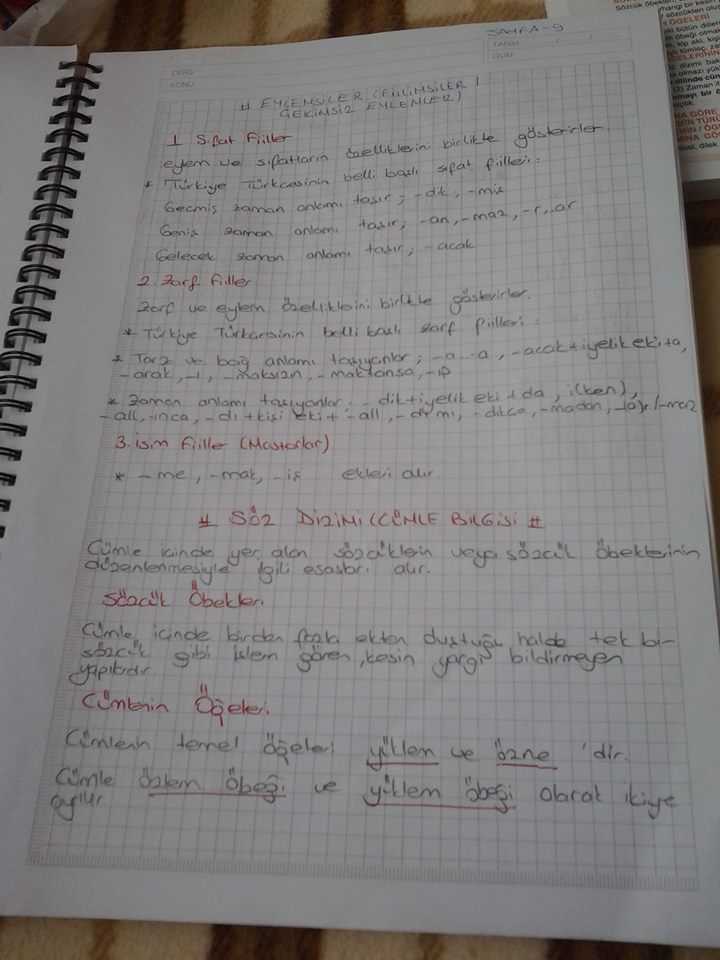 SAYFA-9
DERS
KONU
TARİH
GÜN
# EYLEMSİLER (FİİLİMSİLER /
ÇEKİMSİZ EYLEMLER)
1. Sıfat Fiiller
eylem ve sıfatların özelliklerini birlikte gösterirler.
* Türkiye Türkcesinin belli başlı sıfat fiilleri:
Geçmiş zaman anlamı taşır; -dık, -mış
Geniş zaman anlamı taşır; -an, -maz, -r, -ar
Gelecek zaman anlamı taşır; -acak
2. Zarf fiiller
Zarf ve eylem özelliklerini birlikte gösterirler.
* Türkiye Türkcesinin belli başlı zarf fiilleri:
* Tarz ve bağ anlamı taşıyanlar; -a..-a, -acak+iyelik eki+a,
-arak, -ı, -maksızın, -maktansa, -ıp
* Zaman anlamı taşıyanlar: -dık+iyelik eki+da, i(ken),
-alı, -ınca, -dı+kişi eki+-alı, -dı mı, -dıkca, -madan, -(a)r/-maz
3. isim fiiller (Mastarlar)
* -me, -mak, -iş ekleri alır
# SÖZ DİZİMİ (CÜMLE BİLGİSİ #
Cümle içinde yer alan sözcüklerin veya sözcük öbeklerinin
düzenlenmesiyle ilgili esasları alır.
Sözcük Öbekleri
Cümle içinde birden fazla ekten oluştuğu halde tek bir
sözcük gibi işlem gören, kesin yargı bildirmeyen
yapılardır.
Cümlenin Öğeleri
Cümlenin temel öğeleri yüklem ve özne 'dir.
Cümle özlem öbeği ve yüklem öbeği olarak ikiye
ayrılır